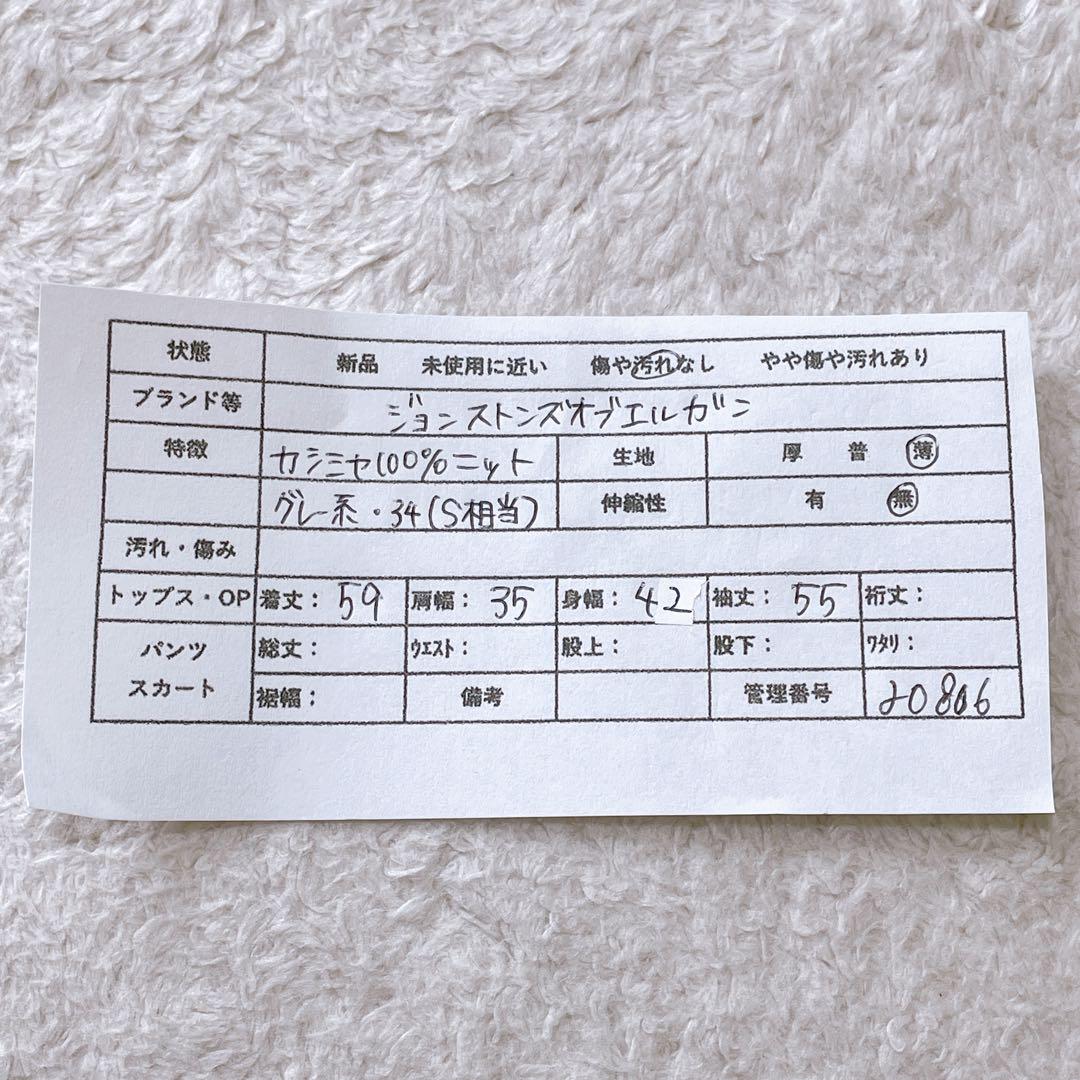 状態 新品 未使用に近い 傷や汚れなし やや傷や汚れあり
ブランド等 ジョンストンズオブエルガン
特徴 カシミヤ100%ニット 生地 厚 普 薄
グレー系・34(S相当) 伸縮性 有 無
汚れ・傷み
トップス・OP 着丈: 59 肩幅: 35 身幅: 42 袖丈: 55 裄丈:
パンツ 総丈: ウエスト: 股上: 股下: ワタリ:
スカート 裾幅: 備考 管理番号 20806